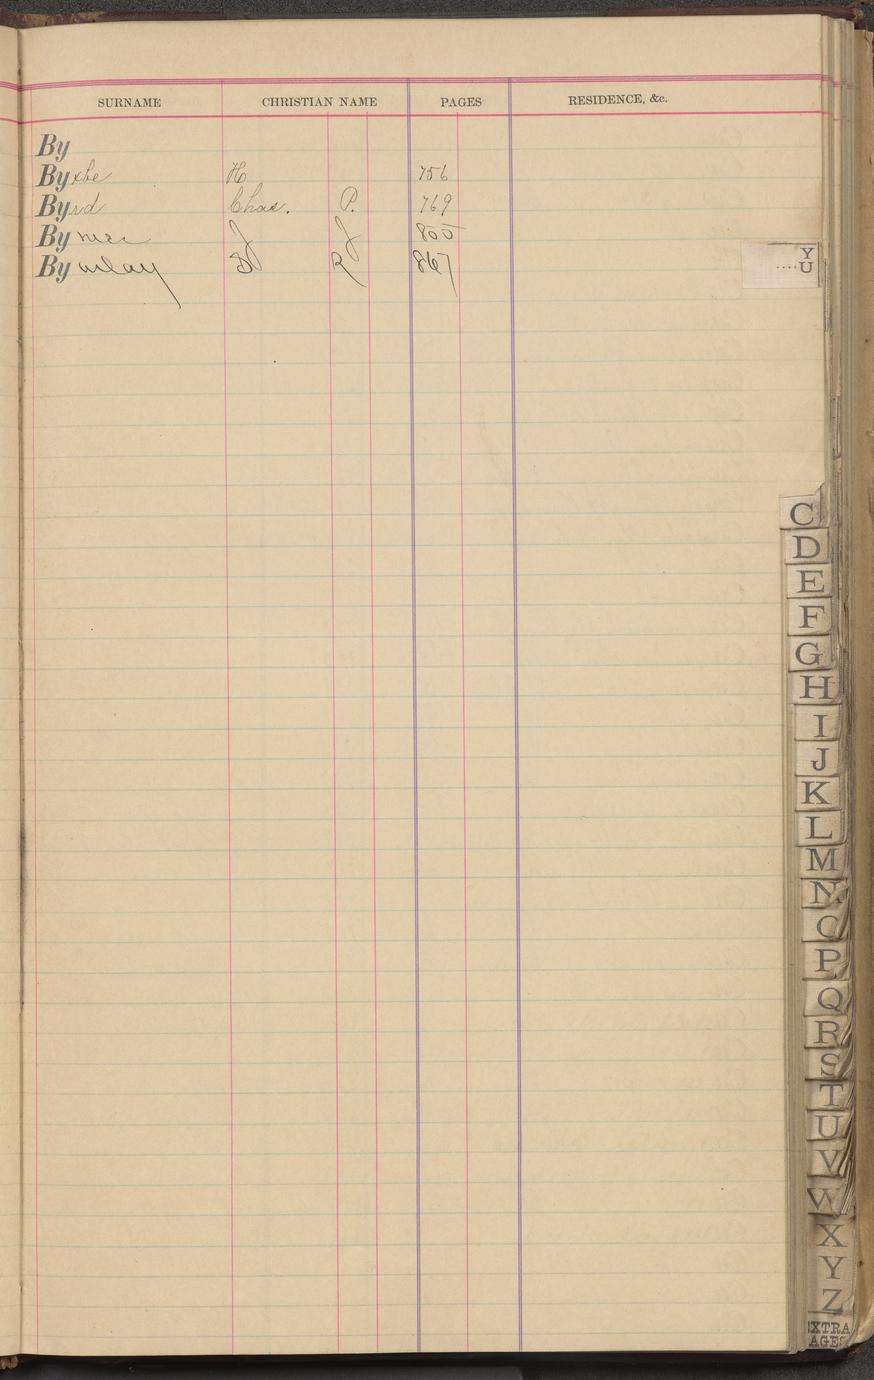 SURNAME CHRISTIAN NAME PAGES RESIDENCE, &c.
By
Byxbe H 756
Byrd Chas. P. 769
By J J 800
By D R 867
Y
....U
C
D
E
F
G
H
I
J
K
L
M
N
O
P
Q
R
S
T
U
V
W
X
Y
Z
EXTRA
PAGES